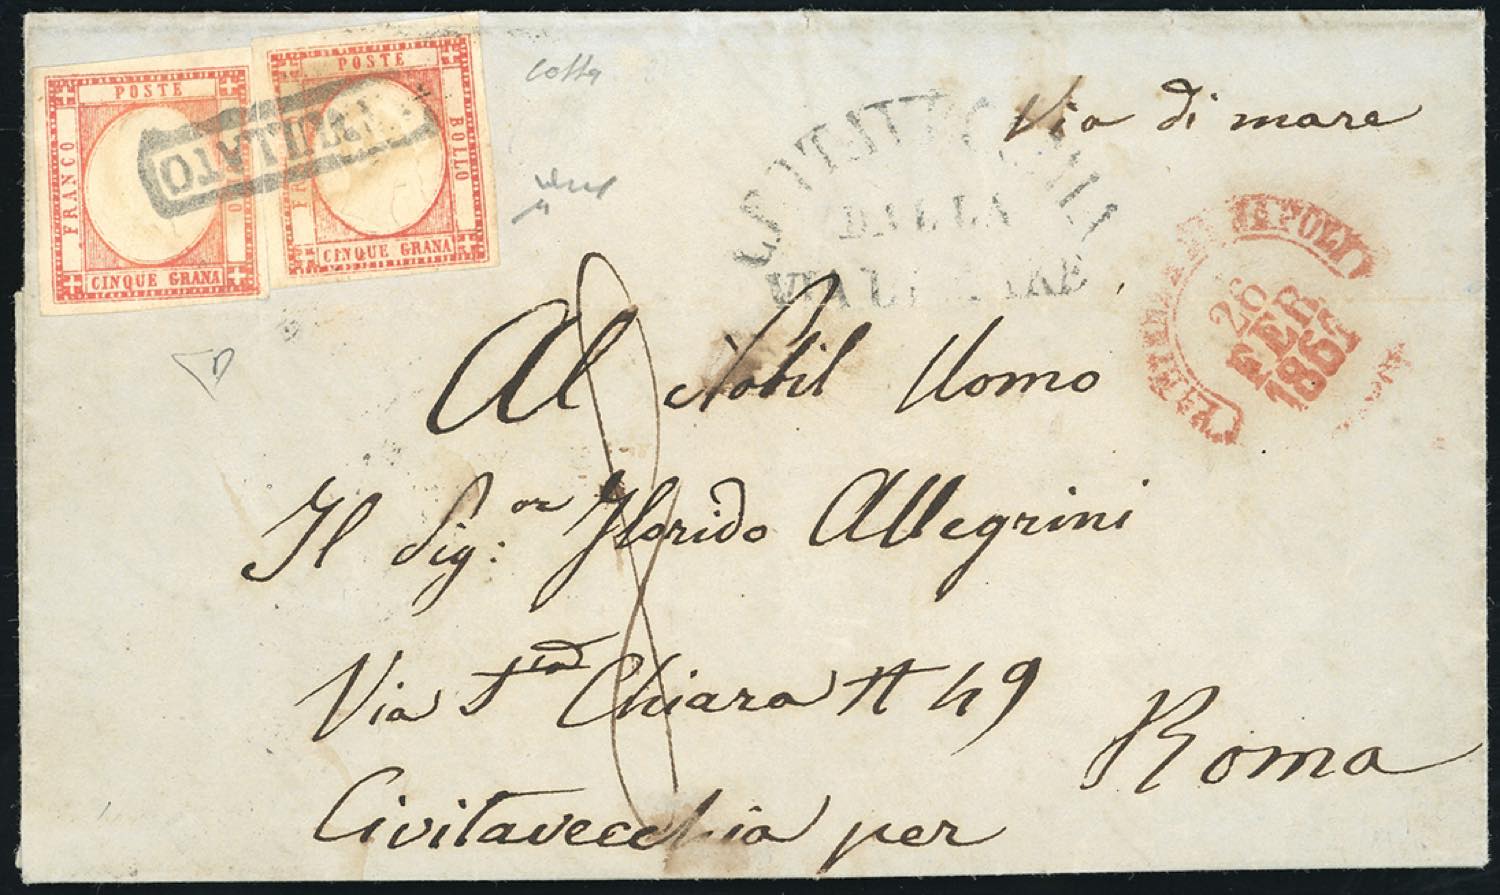 POSTE
FRANCO
CINQUE GRANA
POSTE
BOLLO
CINQUE GRANA
ANNULLATO
Via di mare
DALLA
VIA DI MARE
NAPOLI
26
FEB
1861
Al Nobil Uomo
Il Sig:or Florido Allegrini
Via Sta Chiara N 49
Civitavecchia per Roma
8